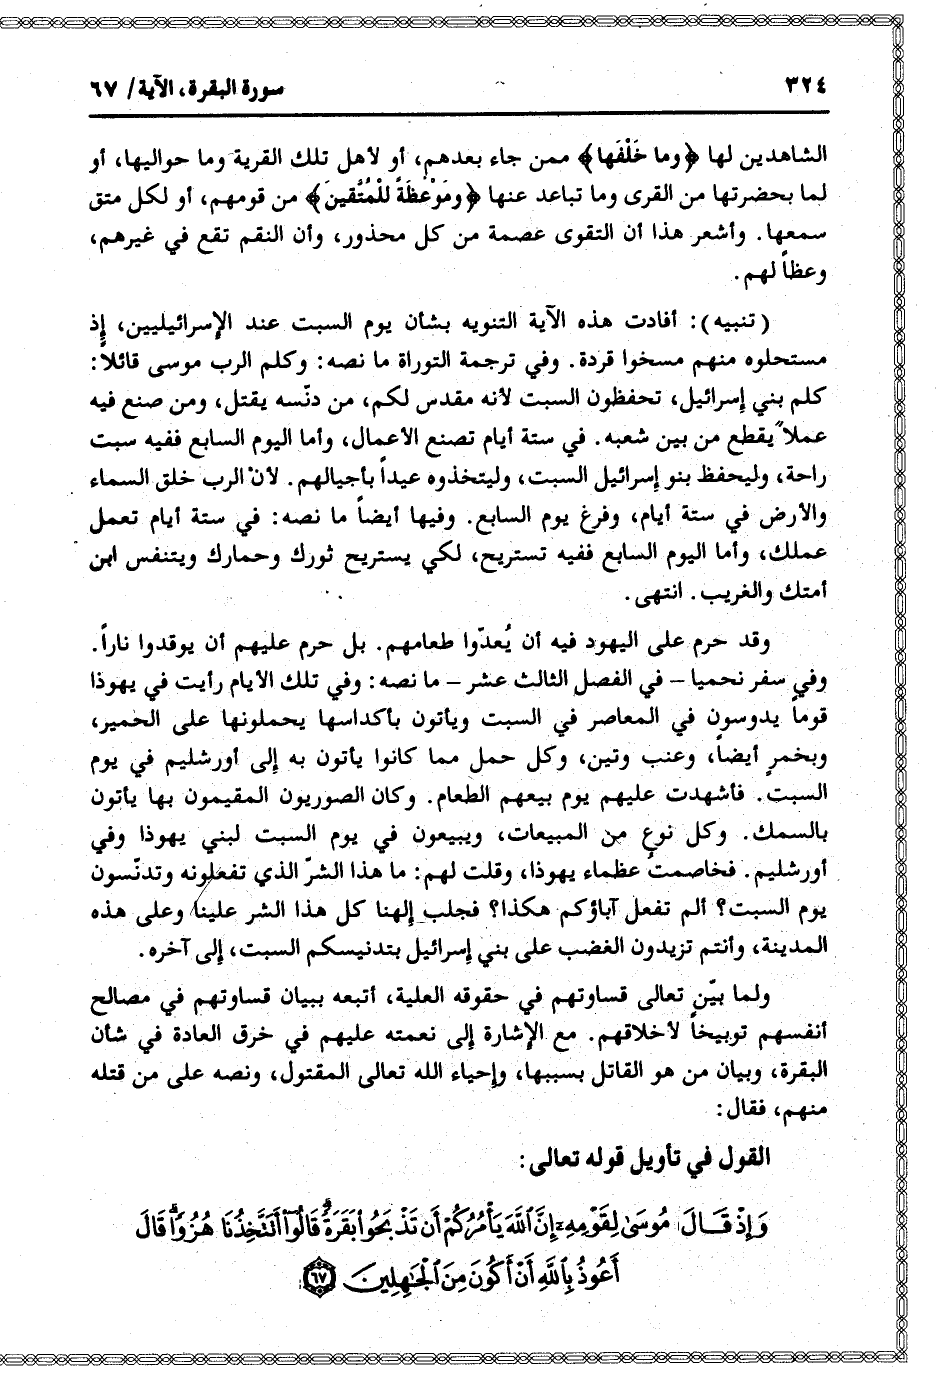 ٣٢٤ سورة البقرة، الآية/ ٦٧
الشاهدين لها ﴿وما خَلْفَها﴾ ممن جاء بعدهم، أو لأهل تلك القرية وما حواليها، أو
لما بحضرتها من القرى وما تباعد عنها ﴿ومَوْعظَةً للْمُتَّقينَ﴾ من قومهم، أو لكل متق
سمعها. وأشعر هذا أن التقوى عصمة من كل محذور، وأن النقم تقع في غيرهم،
وعظاً لهم.
(تنبيه): أفادت هذه الآية التنويه بشأن يوم السبت عند الإسرائيليين، إذ
مستحلوه منهم مسخوا قردة. وفي ترجمة التوراة ما نصه: وكلم الرب موسى قائلاً:
كلم بني إسرائيل، تحفظون السبت لأنه مقدس لكم، من دنّسه يقتل، ومن صنع فيه
عملاً يقطع من بين شعبه. في ستة أيام تصنع الأعمال، وأما اليوم السابع ففيه سبت
راحة، وليحفظ بنو إسرائيل السبت، وليتخذوه عيداً بأجيالهم. لأن الرب خلق السماء
والأرض في ستة أيام، وفرغ يوم السابع. وفيها أيضاً ما نصه: في ستة أيام تعمل
عملك، وأما اليوم السابع ففيه تستريح، لكي يستريح ثورك وحمارك ويتنفس ابن
أمتك والغريب. انتهى.
وقد حرم على اليهود فيه أن يُعدّوا طعامهم. بل حرم عليهم أن يوقدوا ناراً.
وفي سفر نحميا – في الفصل الثالث عشر – ما نصه: وفي تلك الأيام رأيت في يهوذا
قوماً يدوسون في المعاصر في السبت ويأتون بأكداسها يحملونها على الحمير،
وبخمرٍ أيضاً، وعنب وتين، وكل حمل مما كانوا يأتون به إلى أورشليم في يوم
السبت. فأشهدت عليهم يوم بيعهم الطعام. وكان الصوريون المقيمون بها يأتون
بالسمك. وكل نوع من المبيعات، ويبيعون في يوم السبت لبني يهوذا وفي
أورشليم. فخاصمتُ عظماء يهوذا، وقلت لهم: ما هذا الشرّ الذي تفعلونه وتدنّسون
يوم السبت؟ ألم تفعل آباؤكم هكذا؟ فجلب إلهنا كل هذا الشر علينا وعلى هذه
المدينة، وأنتم تزيدون الغضب على بني إسرائيل بتدنيسكم السبت، إلى آخره.
ولما بيّن تعالى قساوتهم في حقوقه العلية، أتبعه ببيان قساوتهم في مصالح
أنفسهم توبيخاً لأخلاقهم. مع الإشارة إلى نعمته عليهم في خرق العادة في شأن
البقرة، وبيان من هو القاتل بسببها، وإحياء الله تعالى المقتول، ونصه على من قتله
منهم، فقال:
القول في تأويل قوله تعالى:
وَإِذْ قَالَ مُوسَىٰ لِقَوْمِهِۦٓ إِنَّ ٱللَّهَ يَأْمُرُكُمْ أَن تَذْبَحُوا۟ بَقَرَةً ۖ قَالُوٓا۟ أَتَتَّخِذُنَا هُزُوًا ۖ قَالَ
أَعُوذُ بِٱللَّهِ أَنْ أَكُونَ مِنَ ٱلْجَٰهِلِينَ ٦٧